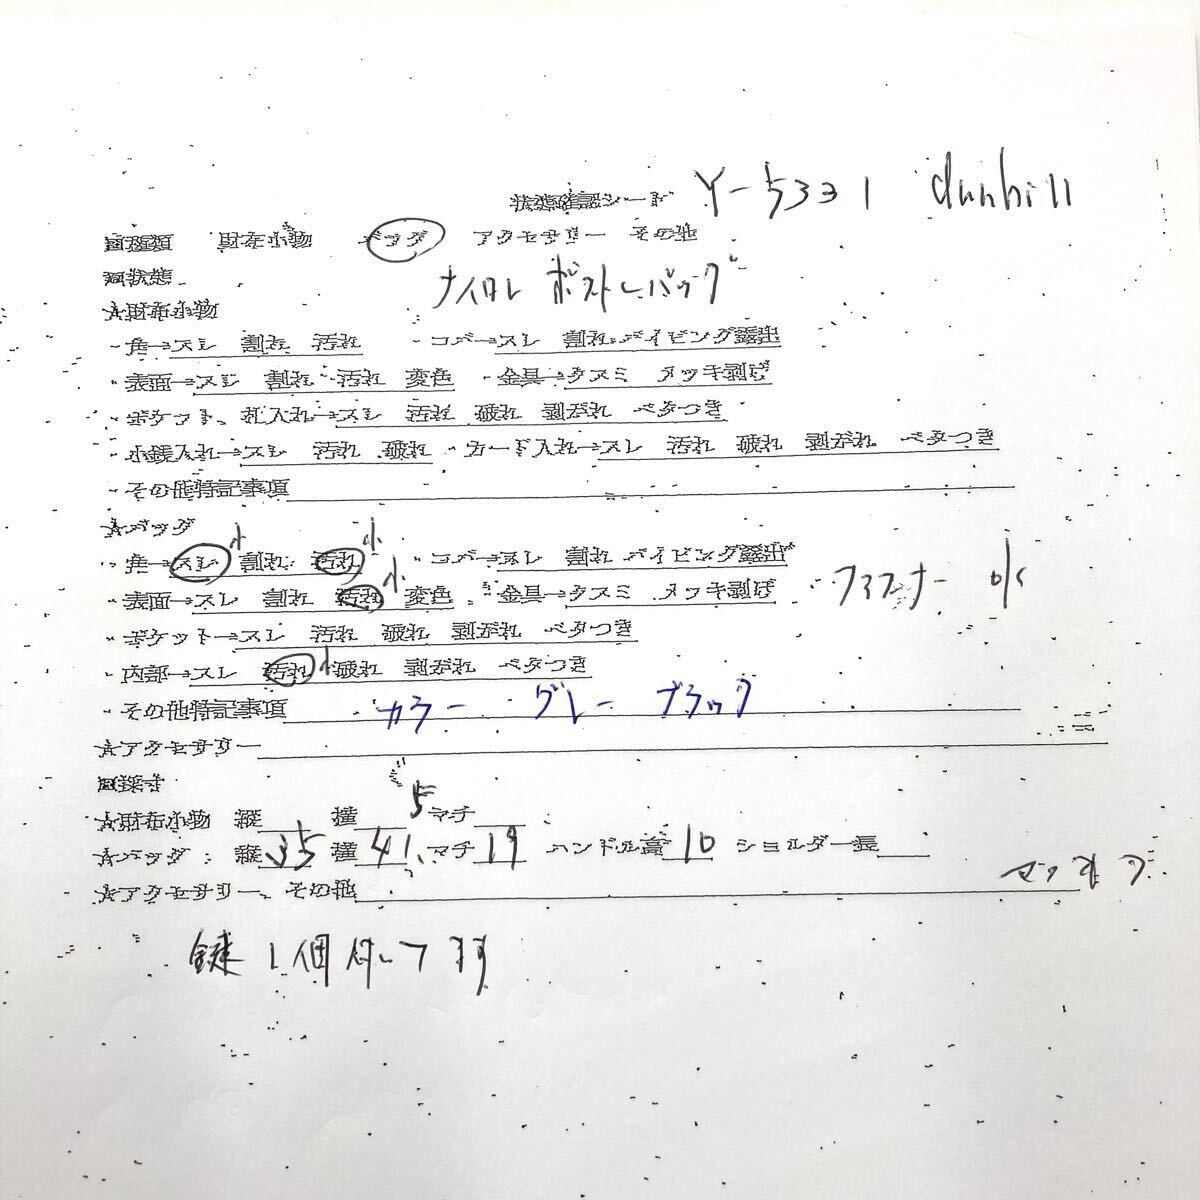 状態確認シート Y-5331 dunhill
■種類 財布小物 バッグ アクセサリー その他
■状態 ナイロン ボストンバッグ
★財布小物
・角→スレ 割れ 汚れ ・コバ→スレ 割れ パイピング露出
・表面→スレ 割れ 汚れ 変色 ・金具→クスミ メッキ剥げ
・ポケット、札入れ→スレ 汚れ 破れ 剥がれ ベタつき
・小銭入れ→スレ 汚れ 破れ ・カード入れ→スレ 汚れ 破れ 剥がれ ベタつき
・その他特記事項
★バッグ
・角→スレ 小 割れ 汚れ 小 ・コバ→スレ 割れ パイピング露出
・表面→スレ 割れ 汚れ 小 変色 ・金具→クスミ メッキ剥げ ファスナー
・ポケット→スレ 汚れ 破れ 剥がれ ベタつき
・内部→スレ 汚れ 小 破れ 剥がれ ベタつき
・その他特記事項 カラー グレー ブラック
★アクセサリー
■採寸
★財布小物 縦 横 マチ
★バッグ:縦35 横41 マチ19 ハンドル高10 ショルダー長
★アクセサリー、その他
鍵1個付いてます